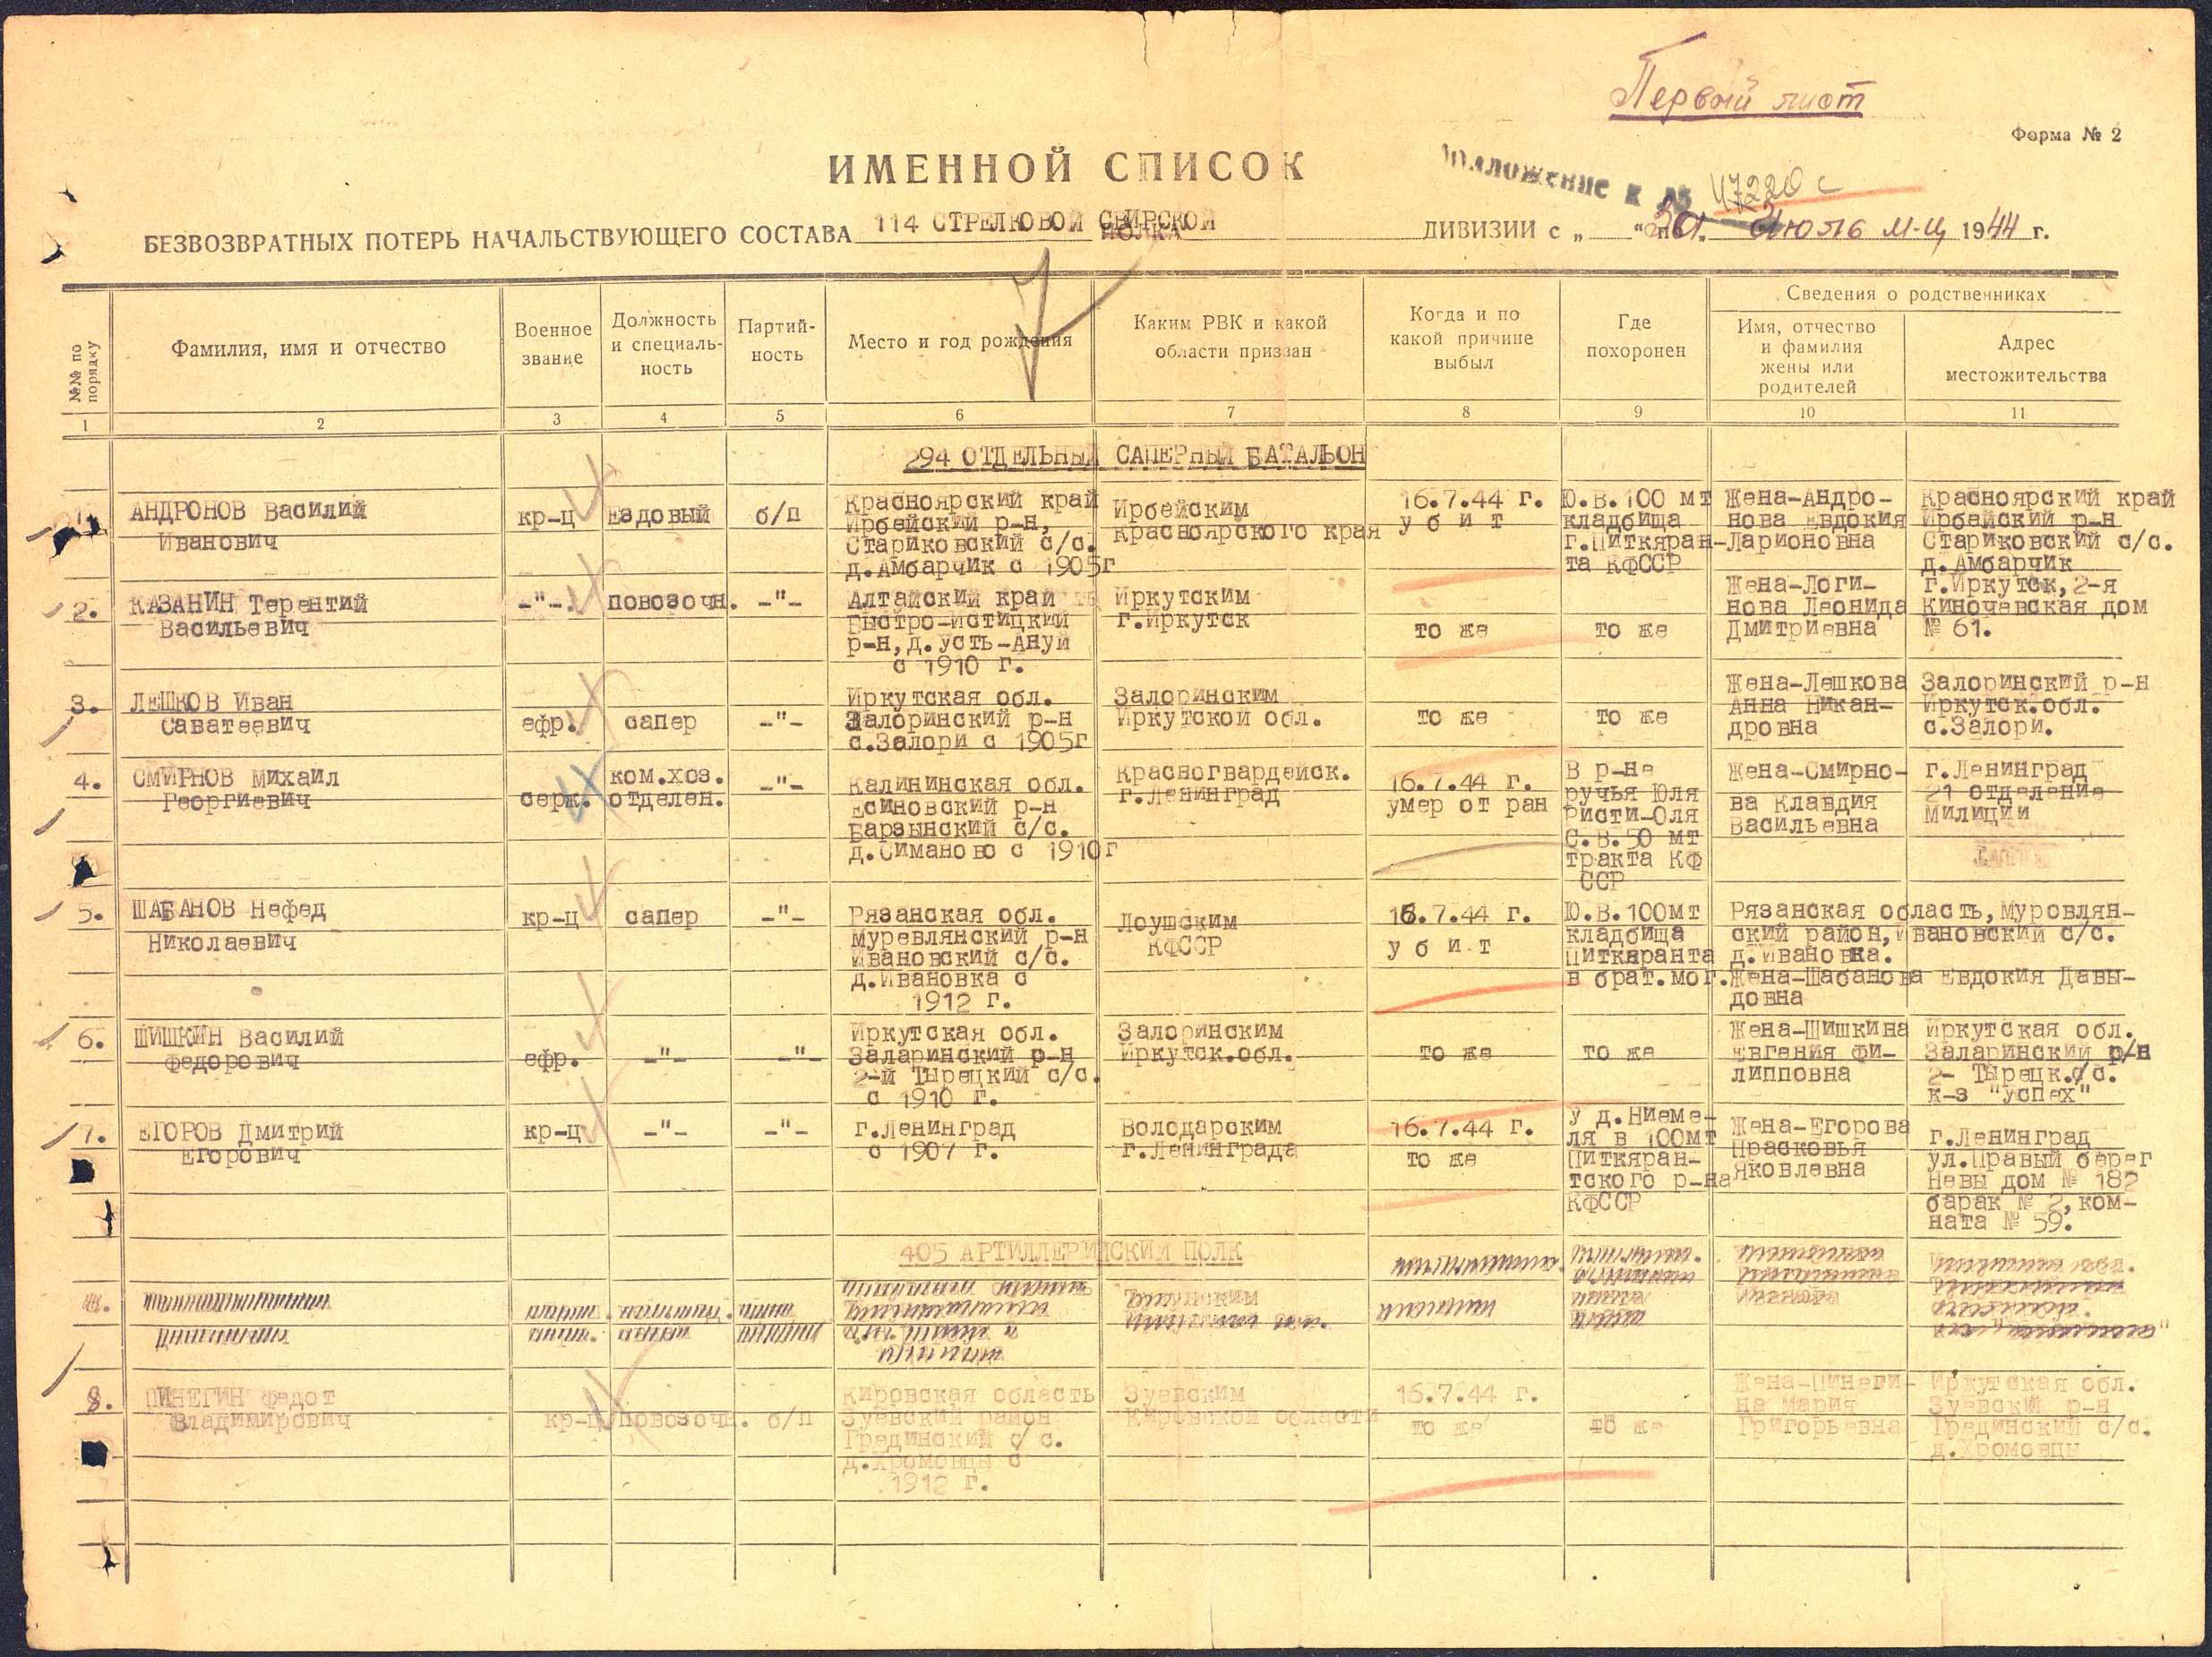 Первый лист
Форма № 2
ИМЕННОЙ СПИСОК
Приложение к № 47220 с
БЕЗВОЗВРАТНЫХ ПОТЕРЬ НАЧАЛЬСТВУЮЩЕГО СОСТАВА 114 СТРЕЛКОВОЙ СВИРСКОЙ ДИВИЗИИ с „ “ Июль м-ц 1944 г.
№№ по порядку
Фамилия, имя и отчество
Военное звание
Должность и специаль-ность
Партий-ность
Место и год рождения
Каким РВК и какой области призван
Когда и по какой причине выбыл
Где похоронен
Сведения о родственниках
Имя, отчество и фамилия жены или родителей
Адрес местожительства
1 2 3 4 5 6 7 8 9 10 11
294 ОТДЕЛЬНЫЙ САПЕРНЫЙ БАТАЛЬОН
1.
АНДРОНОВ Василий
Иванович
кр-ц
Ездовый
б/п
Красноярский край
Ирбейский р-н,
Стариковский с/с.
д.Амбарчик с 1905г
Ирбейским
Красноярского края
16.7.44 г.
у б и т
Ю.В.100 мт
кладбища
г.Питкяран-
та КФССР
Жена-Андро-
нова Евдокия
Ларионовна
Красноярский край
Ирбейский р-н
Стариковский с/с.
д.Амбарчик
2.
КАЗАНИН Терентий
Васильевич
-"-.
повозочн.
-"-
Алтайский край
Быстро-Истицкий
р-н,д.усть-Ануй
с 1910 г.
Иркутским
г.Иркутск
то же
то же
Жена-Логи-
нова Леонида
Дмитриевна
г.Иркутск,2-я
Киночевская дом
№ 61.
3.
ЛЕШКОВ Иван
Саватеевич
ефр.
сапер
-"-
Иркутская обл.
Залоринский р-н
с.Залори с 1905г
Залоринским
Иркутской обл.
то же
то же
Жена-Лешкова
Анна Никан-
дровна
Залоринский р-н
Иркутск.обл.
с.Залори.
4.
СМИРНОВ Михаил
Георгиевич
серж.
ком.хоз.
отделен.
-"-
Калининская обл.
Есиновский р-н
Барзынский с/с.
д.Симаново с 1910г
Красногвардейск.
г.Ленинград
16.7.44 г.
умер от ран
В р-не
ручья Юля
Ристи-Оля
С.В.50 мт
тракта КФ
ССР
Жена-Смирно-
ва Клавдия
Васильевна
г.Ленинград
21 отделение
Милиции
5.
ШАБАНОВ Нефед
Николаевич
кр-ц
сапер
-"-
Рязанская обл.
Муревлянский р-н
Ивановский с/с.
д.Ивановка с
1912 г.
Лоушским
КФССР
16.7.44 г.
у б и т
Ю.В.100мт
кладбища
Питкяранта
в брат.мог.
Рязанская область,Муровлян-
ский район,Ивановский с/с.
д.Ивановка.
Жена-Шабанова Евдокия Давы-
довна
6.
ШИШКИН Василий
Федорович
ефр.
-"-
-"-
Иркутская обл.
Заларинский р-н
2-й Тырецкий с/с.
с 1910 г.
Залоринским
Иркутск.обл.
то же
то же
Жена-Шишкина
Евгения Фи-
липповна
Иркутская обл.
Заларинский р/н
2- Тырецк.с/с.
к-з "Успех"
7.
ЕГОРОВ Дмитрий
Егорович
кр-ц
-"-
-"-
г.Ленинград
с 1907 г.
Володарским
г.Ленинграда
16.7.44 г.
то же
у д.Ниеме-
ля в 100мт
Питкяран-
тского р-на
КФССР
Жена-Егорова
Прасковья
Яковлевна
г.Ленинград
ул.Правый берег
Невы дом № 182
барак № 2,ком-
ната № 59.
405 АРТИЛЛЕРИЙСКИЙ ПОЛК
8.
ПИНЕГИН Федот
Владимирович
кр-ц
повозочн.
б/п
Кировская область
Зуевский район
Грединский с/с.
д.Хромовцы с
1912 г.
Зуевским
Кировской области
16.7.44 г.
то же
то же
Жена-Пинеги-
на Мария
Григорьевна
Иркутская обл.
Зуевский р-н
Грединский с/с.
д.Хромовцы